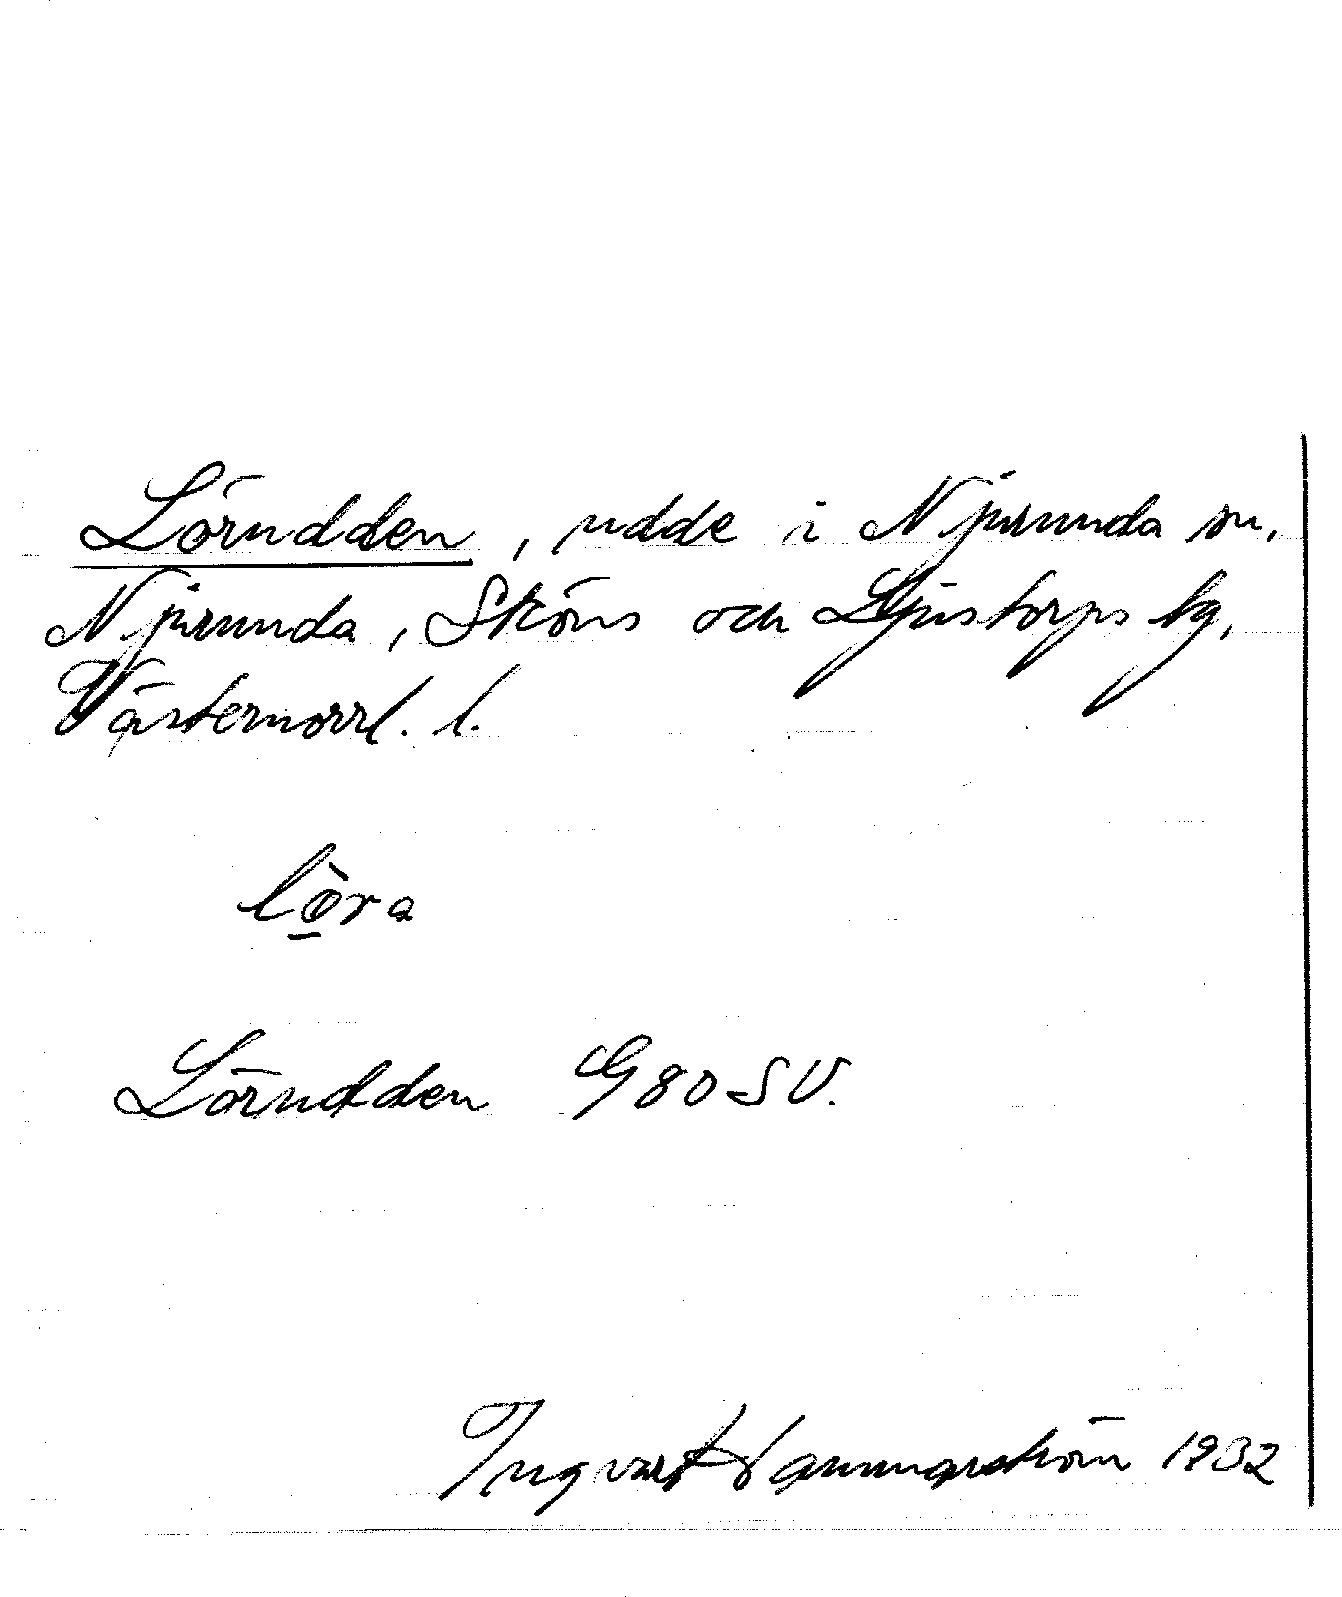 Lörudden, udde i Njurunda sn,
Njurunda, Sköns och Ljustorps tg,
Västernorrl. l.
lö̱̀ra
Lörudden G80SV.
Ingvart Hammarström 1932